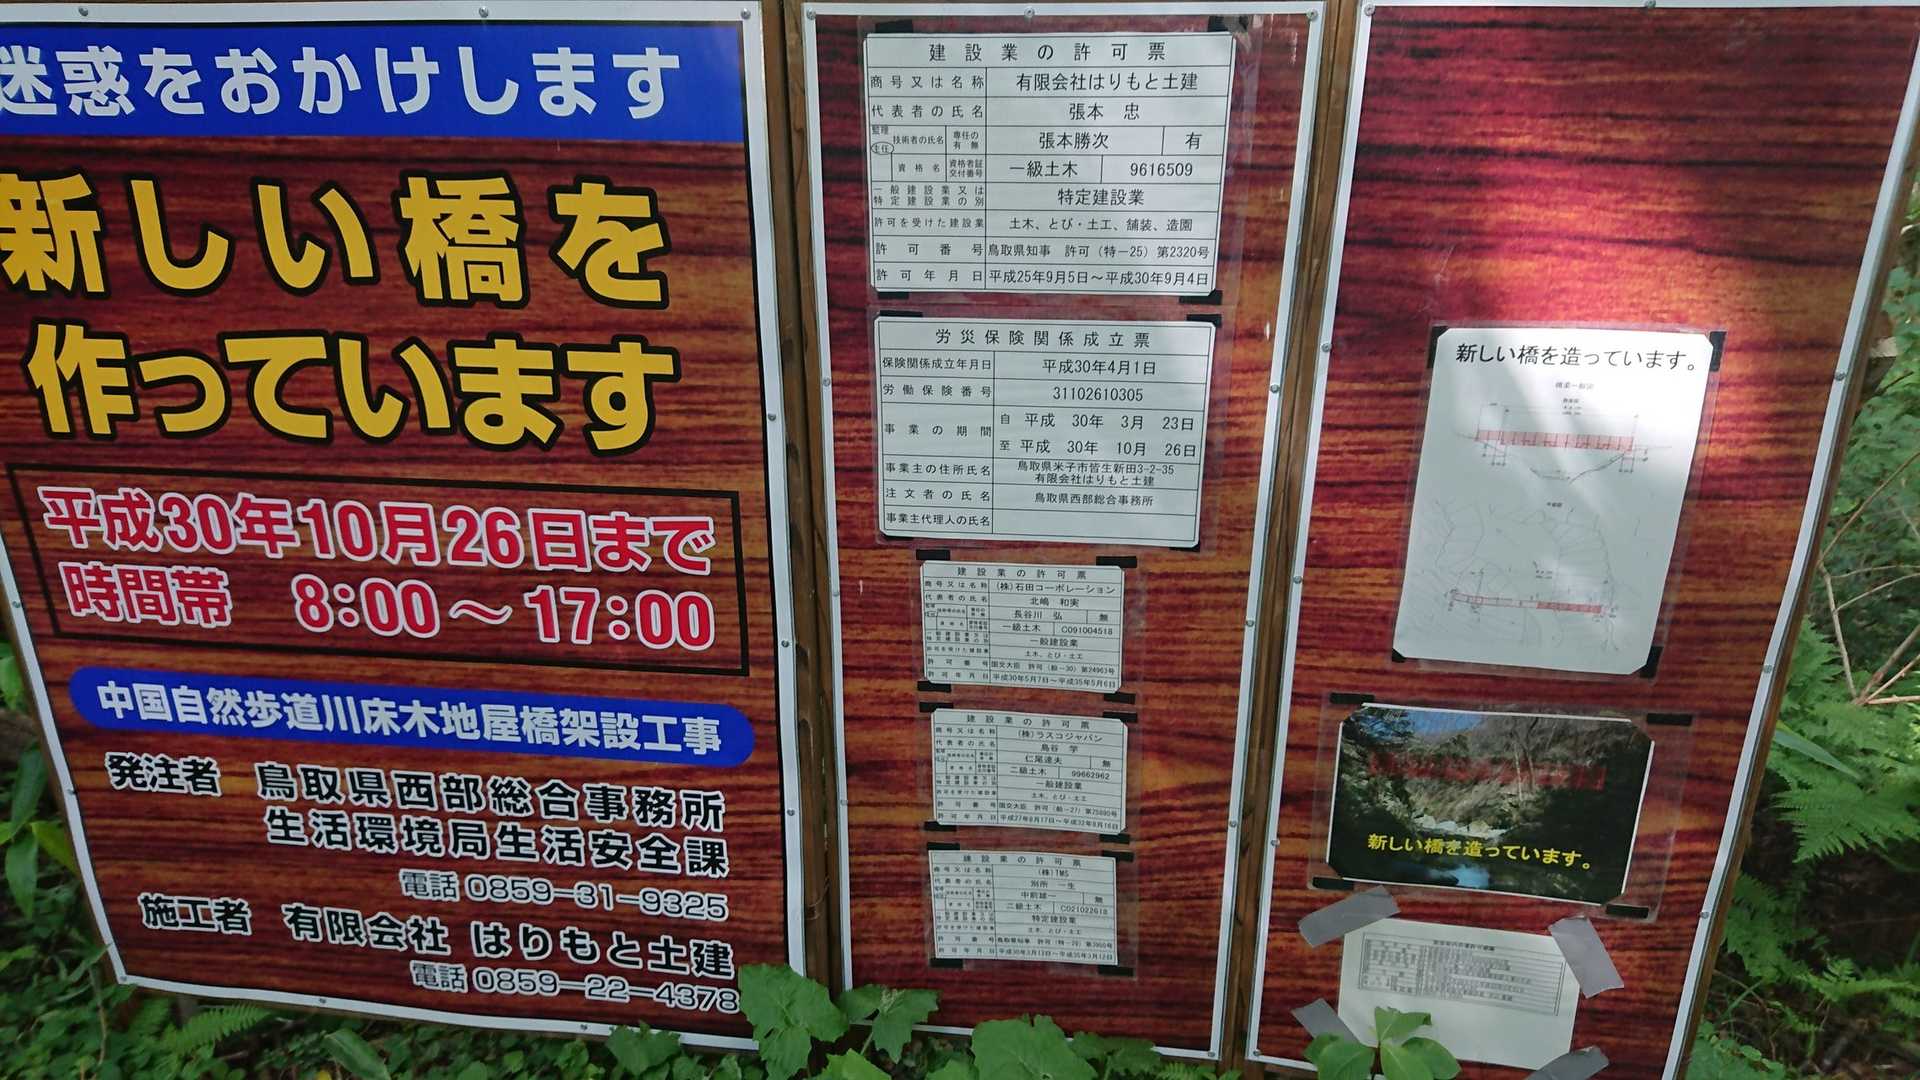 迷惑をおかけします
新しい橋を
作っています
平成30年10月26日まで
時間帯 8:00～17:00
中国自然歩道川床木地屋橋架設工事
発注者 鳥取県西部総合事務所
生活環境局生活安全課
電話 0859-31-9325
施工者 有限会社 はりもと土建
電話 0859-22-4378
建設業の許可票
商号又は名称 有限会社はりもと土建
代表者の氏名 張本 忠
監理
主任 技術者の氏名 専任の有無 張本勝次 有
資格名 資格者証交付番号 一級土木 9616509
一般建設業又は
特定建設業の別 特定建設業
許可を受けた建設業 土木、とび・土工、舗装、造園
許可番号 鳥取県知事 許可（特－25）第2320号
許可年月日 平成25年9月5日～平成30年9月4日
労災保険関係成立票
保険関係成立年月日 平成30年4月1日
労働保険番号 31102610305
事業の期間 自 平成 30年 3月 23日
至 平成 30年 10月 26日
事業主の住所氏名 鳥取県米子市皆生新田3-2-35
有限会社はりもと土建
注文者の氏名 鳥取県西部総合事務所
事業主代理人の氏名
建設業の許可票
商号又は名称 (株)石田コーポレーション
代表者の氏名 北嶋 和実
長谷川 弘 無
一級土木 C091004518
一般建設業
土木、とび・土工
許可番号 国交大臣 許可（般－30）第24963号
許可年月日 平成30年5月7日～平成35年5月6日
建設業の許可票
商号又は名称 (株)ラスコジャパン
代表者の氏名 鳥谷 学
仁尾達夫 無
二級土木 99662962
一般建設業
土木、とび・土工
許可番号 国交大臣 許可（般－27）
許可年月日
建設業の許可票
商号又は名称 (株)TMS
代表者の氏名 別所 一生
中前雄一 無
二級土木 C021022618
特定建設業
土木、とび・土工
許可番号 鳥取県知事 許可
許可年月日 平成30年3月13日～平成35年3月12日
新しい橋を造っています。
新しい橋を造っています。